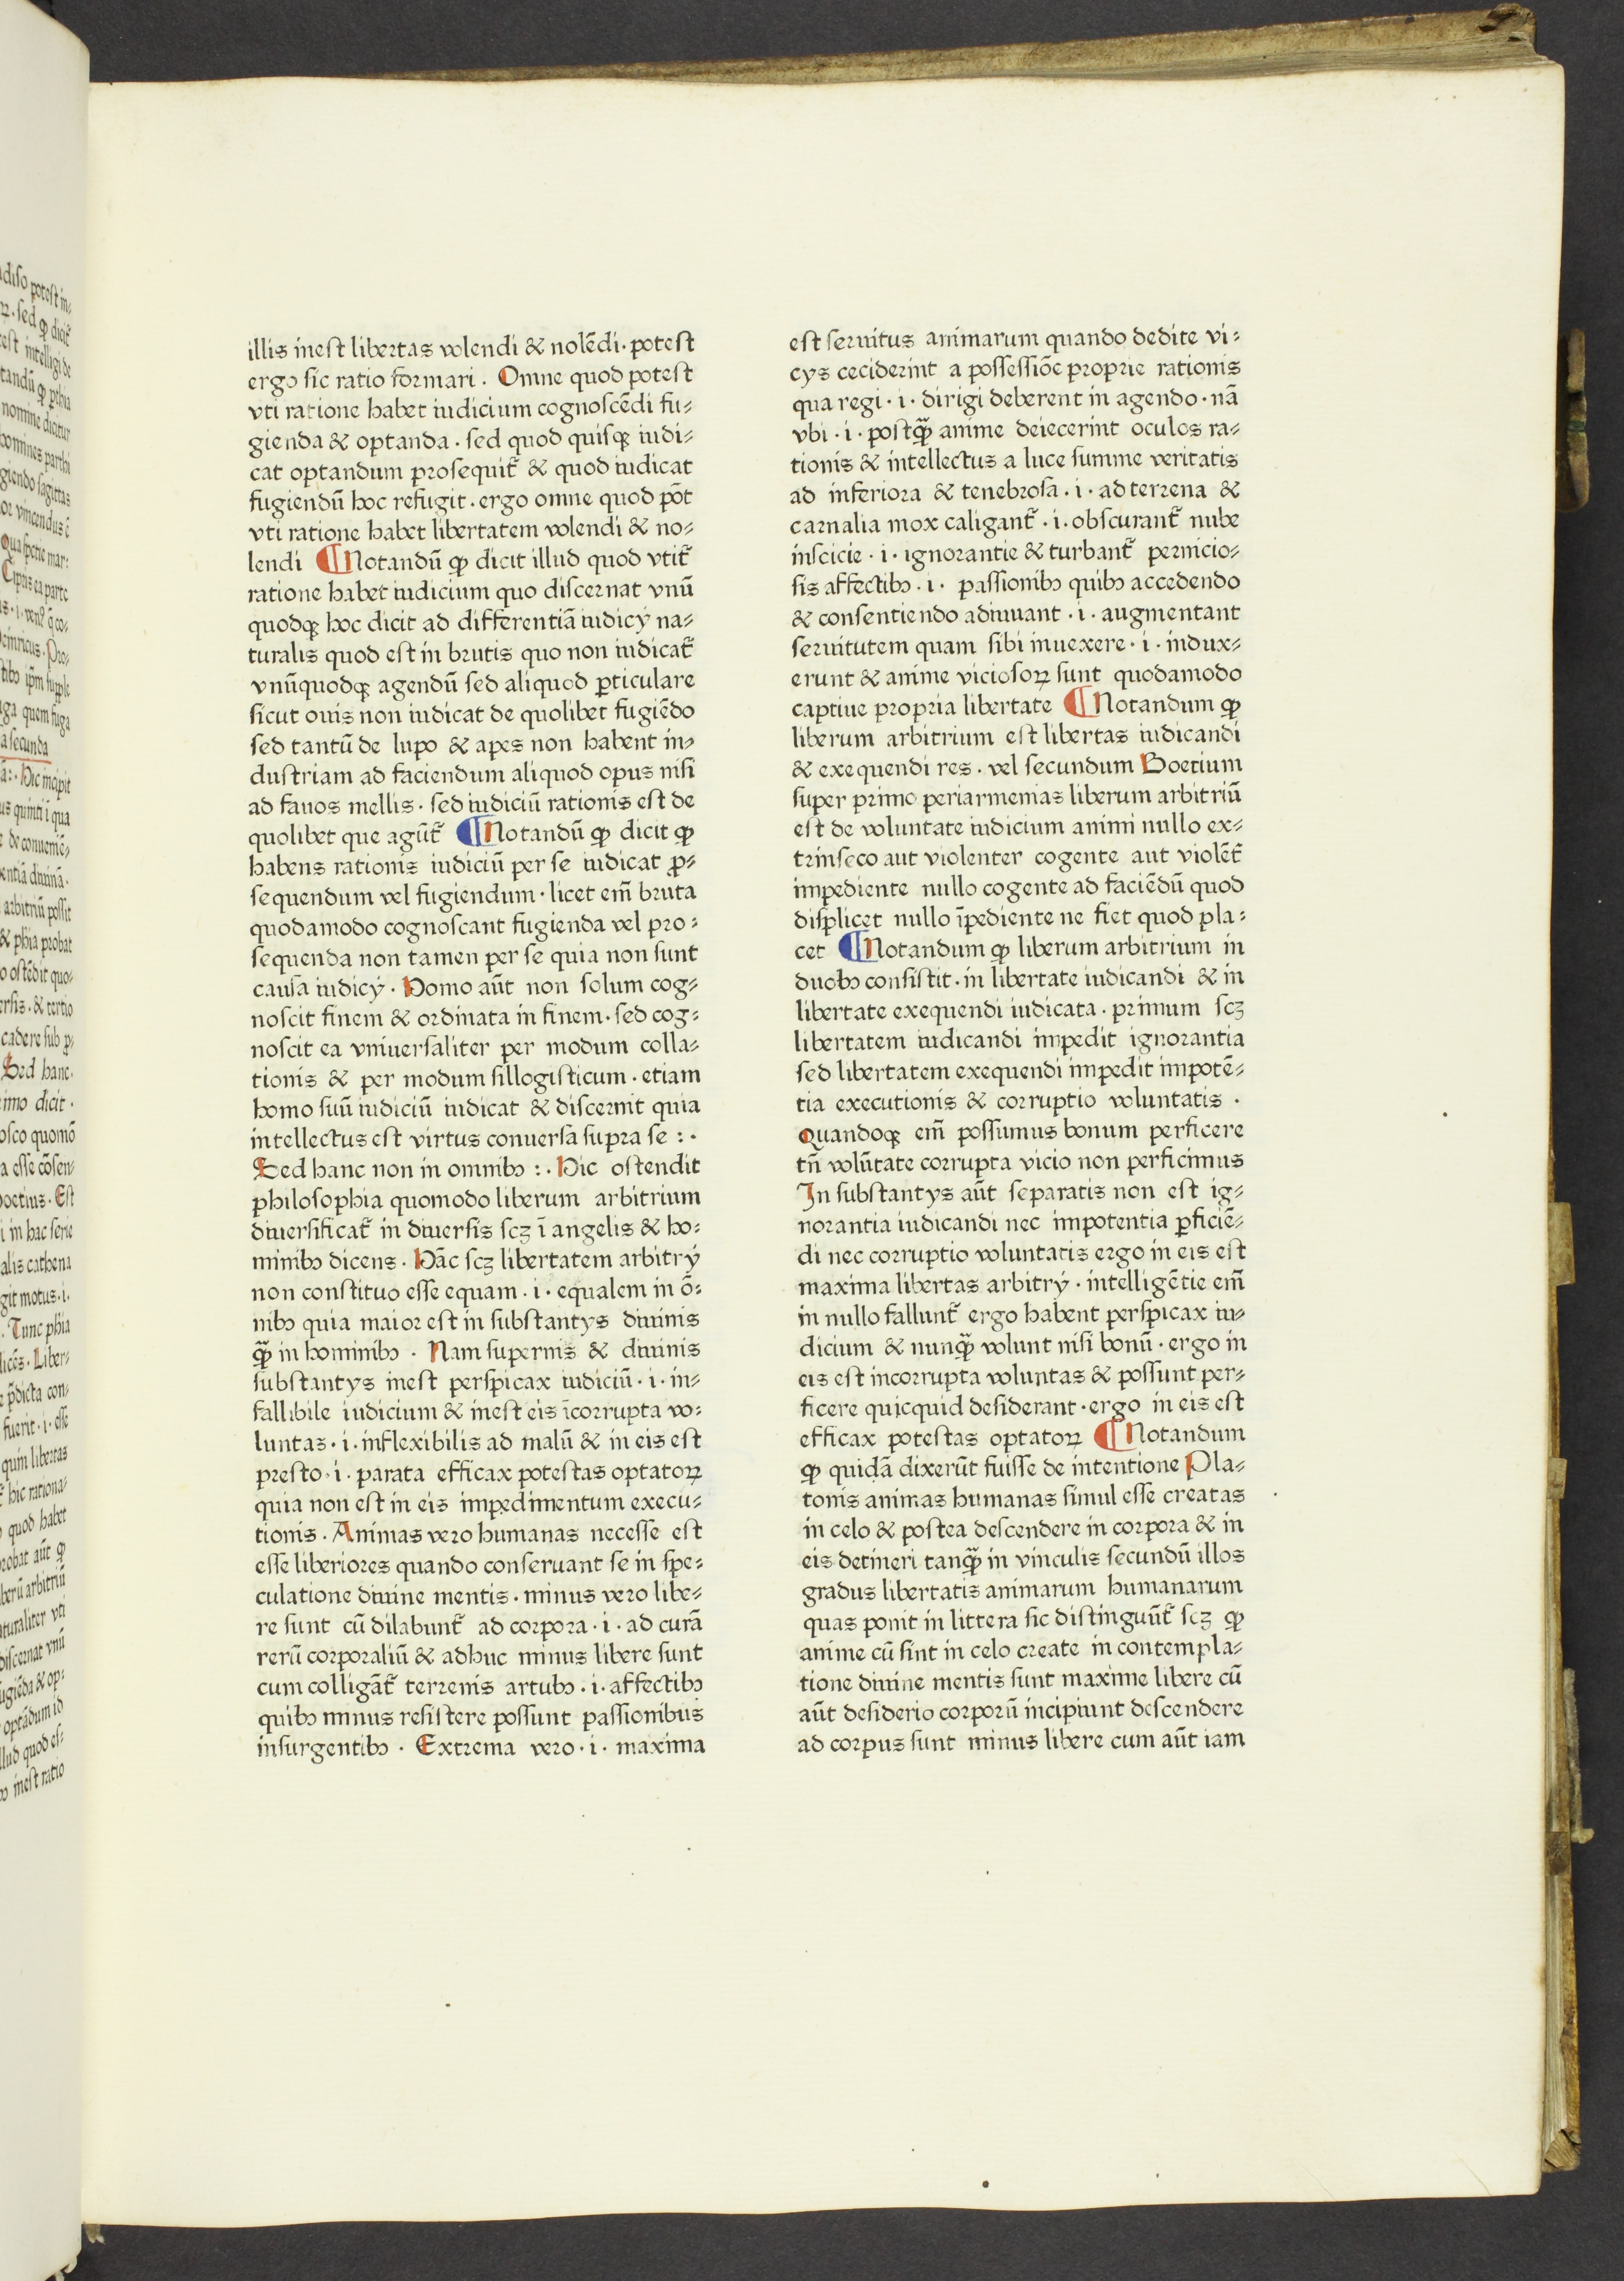 illis inest libertas volendi & nolẽdi· potest
ergo sic ratio formari . Omne quod potest
vti ratione habet iudicium cognoscẽdi fu⸗
gienda & optanda · sed quod quisqꝫ iudi⸗
cat optandum prosequit᷑ & quod iudicat
fugiendũ hoc refugit · ergo omne quod põt
vti ratione habet libertatem volendi & no⸗
lendi ¶Notandũ ꝙ dicit illud quod vtit᷑
ratione habet iudicium quo discernat vnũ
quodqꝫ hoc dicit ad differentiã iudicÿ na⸗
turalis quod est in brutis quo non iudicat᷑
vnũquodqꝫ agendũ sed aliquod ꝑticulare
sicut ouis non iudicat de quolibet fugiẽdo
sed tantũ de lupo & apes non habent in⸗
dustriam ad faciendum aliquod opus nisi
ad fauos mellis · sed iudiciũ rationis est de
quolibet que agũt᷑ ¶Notandũ ꝙ dicit ꝙ
habens rationis iudiciũ per se iudicat ꝓ⸗
sequendum vel fugiendum · licet em̃ bruta
quodamodo cognoscant fugienda vel pro⸗
sequenda non tamen per se quia non sunt
causa iudicÿ · Homo aũt non solum cog⸗
noscit finem & ordinata in finem · sed cog⸗
noscit ea vniuersaliter per modum colla⸗
tionis & per modum sillogisticum · etiam
homo suũ iudiciũ iudicat & discernit quia
intellectus est virtus conuersa supra se : ·
Sed hanc non in omnibꝯ : . Hic ostendit
philosophia quomodo liberum arbitrium
diuersificat᷑ in diuersis scꝫ ĩ angelis & ho⸗
minibꝯ dicens · Hãc scꝫ libertatem arbitrÿ
non constituo esse equam · i · equalem in õ⸗
nibꝯ quia maior est in substantÿs diuinis
qꝫ̃ in hominibꝯ · Nam supernis & diuinis
substantÿs inest perspicax iudiciũ · i · in⸗
fallibile iudicium & inest eis ĩcorrupta vo⸗
luntas · i · inflexibilis ad malũ & in eis est
presto · i · parata efficax potestas optatoꝝ
quia non est in eis impedimentum execu⸗
tionis · Animas vero humanas necesse est
esse liberiores quando conseruant se in spe⸗
culatione diuine mentis · minus vero libe⸗
re sunt cũ dilabunt᷑ ad corpora · i · ad curã
rerũ corporaliũ & adhuc minus libere sunt
cum colligãt᷑ terrenis artubꝯ · i · affectibꝯ
quibꝯ minus resistere possunt passionibus
insurgentibꝯ · Extrema vero · i · maxima
est seruitus animarum quando dedite vi⸗
cÿs ceciderint a possessiõe proprie rationis
qua regi · i · dirigi deberent in agendo · nã
vbi · i · postqꝫ̃ anime deiecerint oculos ra⸗
tionis & intellectus a luce summe veritatis
ad inferiora & tenebrosa · i · ad terrena &
carnalia mox caligant᷑ · i · obscurant᷑ nube
inscicie · i · ignorantie & turbant᷑ pernicio⸗
sis affectibꝯ · i · passionibꝯ quibꝯ accedendo
& consentiendo adiuuant · i · augmentant
seruitutem quam sibi inuexere · i · indux⸗
erunt & anime viciosoꝝ sunt quodamodo
captiue propria libertate ¶Notandum ꝙ
liberum arbitrium est libertas iudicandi
& exequendi res · vel secundum Boetium
super primo periarmenias liberum arbitriũ
est de voluntate iudicium animi nullo ex⸗
trinseco aut violenter cogente aut violẽt᷑
impediente nullo cogente ad faciẽdũ quod
displicet nullo ĩpediente ne fiet quod pla⸗
cet ¶Notandum ꝙ liberum arbitrium in
duobꝯ consistit · in libertate iudicandi & in
libertate exequendi iudicata · primum scꝫ
libertatem iudicandi impedit ignorantia
sed libertatem exequendi impedit impotẽ⸗
tia executionis & corruptio voluntatis ·
Quandoqꝫ em̃ possumus bonum perficere
tñ volũtate corrupta vicio non perficimus
In substantÿs aũt separatis non est ig⸗
norantia iudicandi nec impotentia ꝑficiẽ⸗
di nec corruptio voluntatis ergo in eis est
maxima libertas arbitrÿ · intelligẽtie em̃
in nullo fallunt᷑ ergo habent perspicax iu⸗
dicium & nunqꝫ̃ volunt nisi bonũ · ergo in
eis est incorrupta voluntas & possunt per⸗
ficere quicquid desiderant · ergo in eis est
efficax potestas optatoꝝ ¶Notandum
ꝙ quidã dixerũt fuisse de intentione Pla⸗
tonis animas humanas simul esse creatas
in celo & postea descendere in corpora & in
eis detineri tanqꝫ̃ in vinculis secundũ illos
gradus libertatis animarum humanarum
quas ponit in littera sic distinguũt᷑ scꝫ ꝙ
anime cũ sint in celo create in contempla⸗
tione diuine mentis sunt maxime libere cũ
aũt desiderio corporũ incipiunt descendere
ad corpus sunt minus libere cum aũt iam